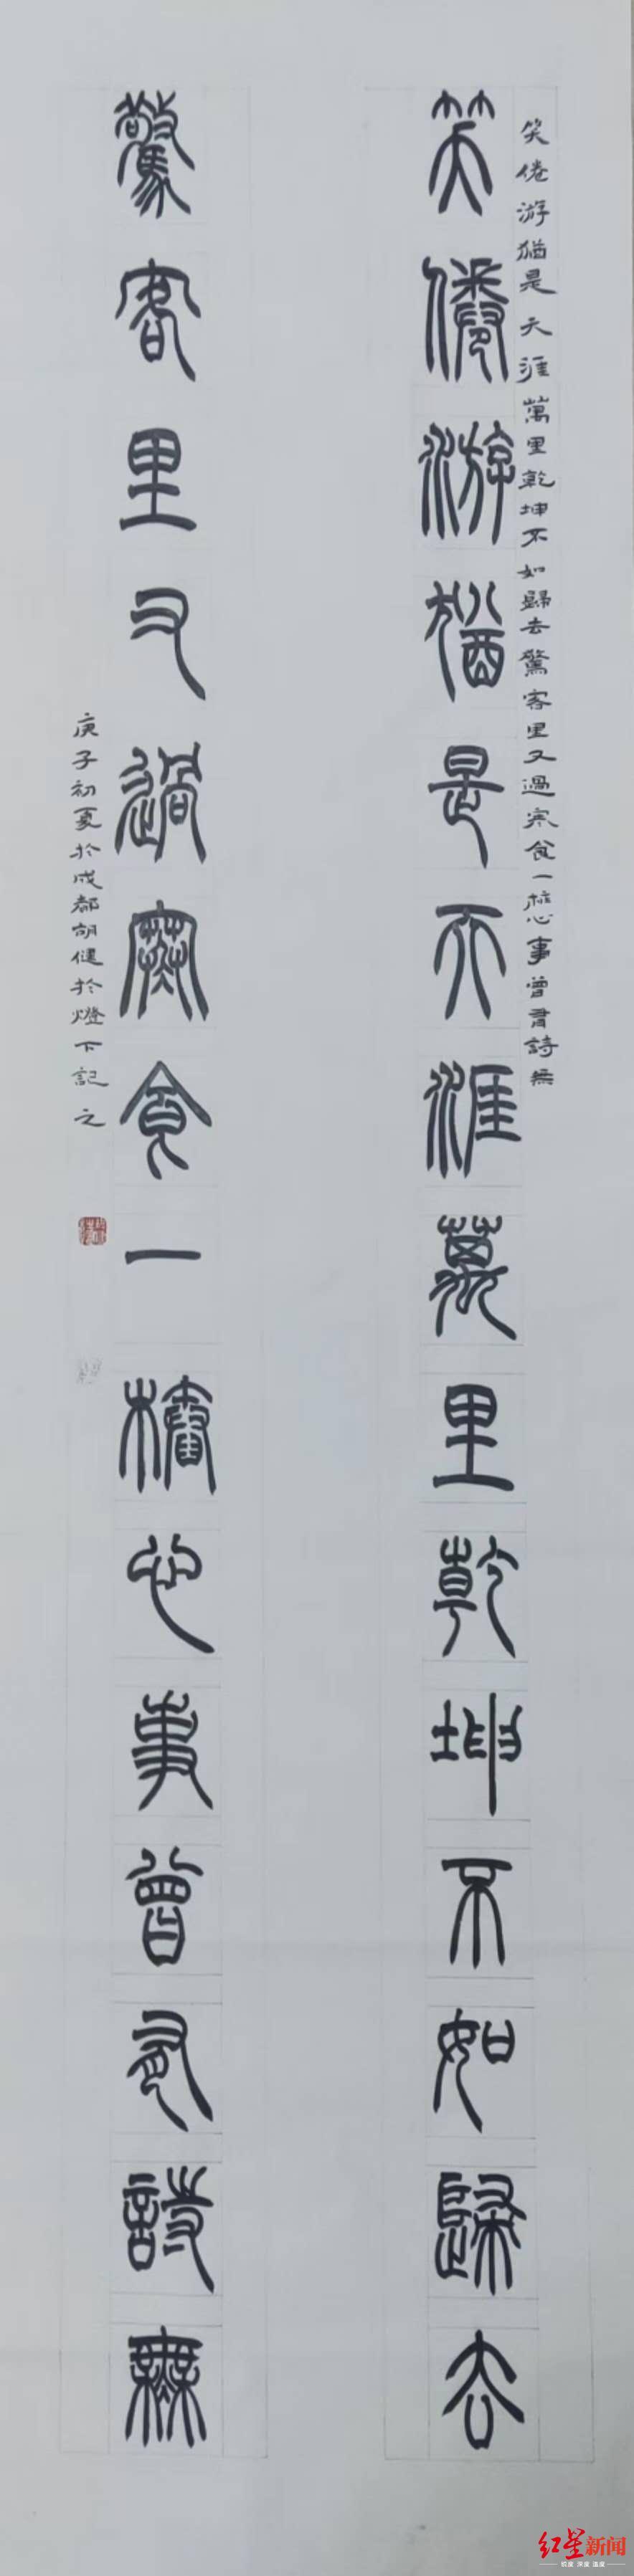 笑倦游猶是天涯萬里乾坤不如歸去驚客里又過寒食一樁心事曾有詩無
笑倦游猶是天涯萬里乾坤不如歸去
驚客里又過寒食一樁心事曾有詩無
庚子初夏於成都胡健於燈下記之
红星新闻
锐度 深度 温度